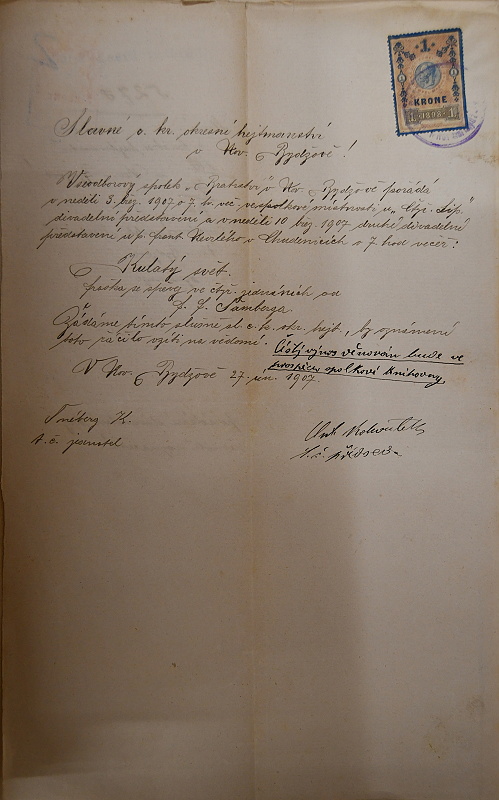 1
KRONE
1 1898 1
Slavné c. kr. okresní hejtmanství
v Nov. Bydžově!
Všeodborový spolek „Bratrství" v Nov. Bydžově pořádá
v neděli 3. břez. 1907 o 7 h. več. ve spolkové místnosti u „Čtyř. lip."
divadelní představení a v neděli 10. břez. 1907 druhé divadelní
představení u p. Frant. v Chudenicích o 7 hod. večer:
Kulatý svět.
fraška se zpěvy ve čtyř. jednáních od
F. F. Šamberga.
Žádáme tímto slušně sl. c. k. okr. hejt., by oznámení
toto ráčilo vzíti na vědomí. Čistý výnos věnován bude ve
prospěch spolkové knihovny
V Nov. Bydžově 27. ún. 1907.
K.
t. č. jednatel
t. č. předseda